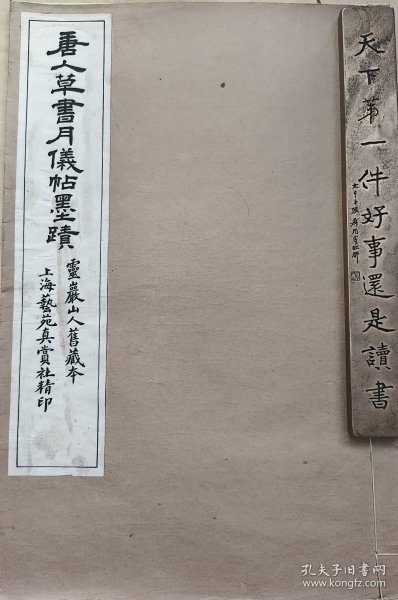 唐人草書月儀帖墨蹟
靈巖山人舊藏本
上海藝苑真賞社精印
天下第一件好事還是讀書
孔夫子旧书网
www.kongfz.com